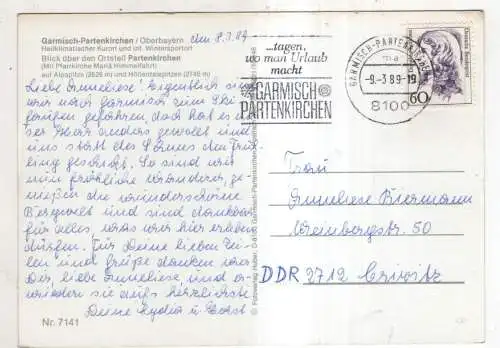 Garmisch-Partenkirchen / Oberbayern
Heilklimatischer Kurort und int. Wintersportort
Blick über den Ortsteil Partenkirchen
(Mit Pfarrkirche Mariä Himmelfahrt)
auf Alpspitze (2628 m) und Höllentalspitzen (2745 m)
den 8.3.89
Liebe Anneliese! Eigentlich sind
wir nach Garmisch zum Ski-
laufen gefahren, doch hat es un-
ser Herr anders gewollt und
uns statt des Schnees den Früh-
ling geschickt. So sind wir
nun fröhliche Wanderer, ge-
nießen die wunderschöne
Bergwelt und sind dankbar
für alles, was wir hier erleben
dürfen. Für Deine lieben Zei-
len und Grüße danken wir
Dir, liebe Anneliese und er-
wiedern sie aufs herzlichste
Deine Lydia u. Horst
Nr. 7141
...tagen,
wo man Urlaub
macht
GARMISCH
PARTENKIRCHEN
GARMISCH-PARTENKIRCHEN
ma
-9.-3.89-10
8100
Deutsche Bundespost
60
Frau
Anneliese Biermann
Weinbergstr. 50
DDR 2712 Crivitz